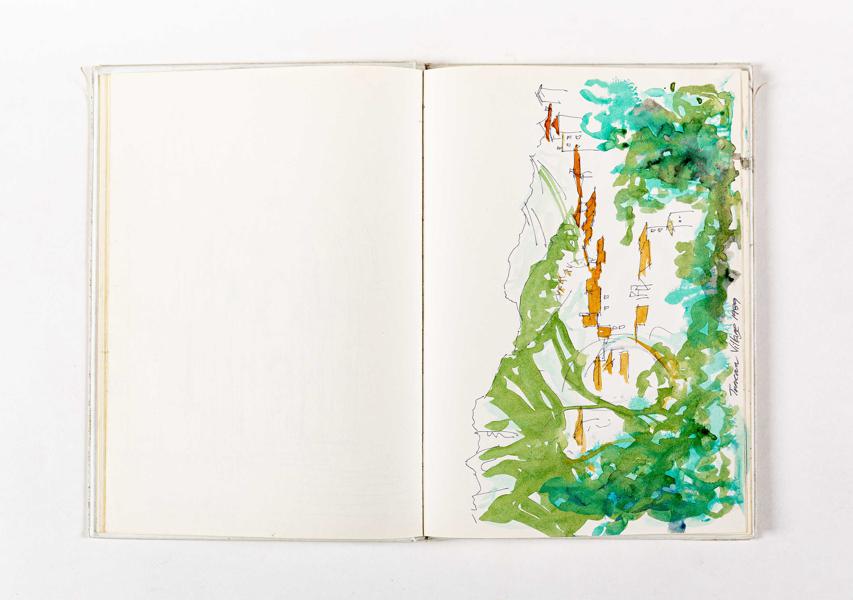 Tuscan Village 1989